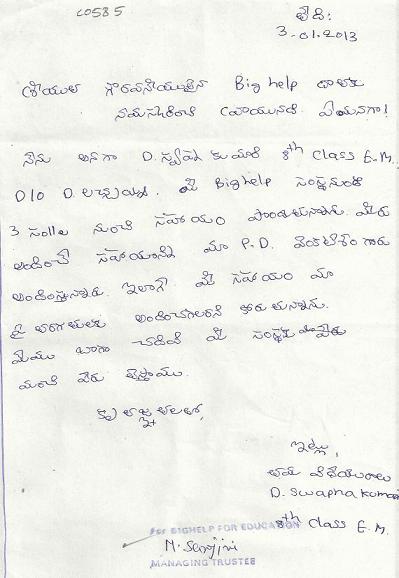 C0585
తేది:
3-01-2013
శ్రీయుత గౌరవనీయులైన Big help దాతకు
నమస్కరించి వ్రాయునది. ఏమనగా!
నేను అనగా D. స్వప్న కుమారి 8th Class E.M.
D/o D. లచ్చయ్య. మీ Bighelp సంస్థనుండి
3 సంllల నుంచి సహాయం పొందుతున్నాను. మీరు
అందించే సహాయాన్ని మా P.D. వెంకటేశం గారు
అందిస్తున్నారు. ఇలాగే మీ సహాయం మా
పై తరగతులకు అందించగలరని కోరుతున్నాను.
మేము బాగా చదివి మీ సంస్థకు మా పేరు
మంచి పేరు తెస్తాము.
కృతజ్ఞతలతో,
ఇట్లు,
తమ విధేయురాలు
D. Swapna kumari
8th Class E.M.
For BIGHELP FOR EDUCATION
MANAGING TRUSTEE